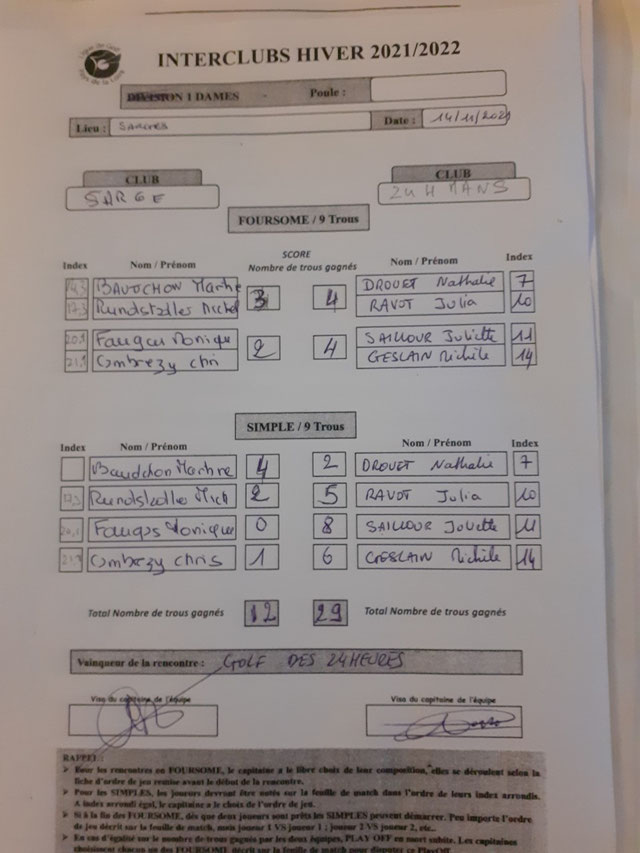 Ligue de Golf
Pays de la Loire
INTERCLUBS HIVER 2021/2022
DIVISION 1 DAMES - Poule :
Lieu : Date : 14/11/2021
CLUB CLUB
SARGE 24H MANS
FOURSOME / 9 Trous
SCORE
Index Nom / Prénom Nombre de trous gagnés Nom / Prénom Index
14,3 BAUDCHON 3 4 DROUET Nathalie 7
17,3 RAVOT Julia 10
20,1 2 4 SAILLOUR Juliette 11
21,9 Combrezy chris GESLAIN Michèle 14
SIMPLE / 9 Trous
Index Nom / Prénom Nom / Prénom Index
Baudchon 4 2 DROUET Nathalie 7
17,3 2 5 RAVOT Julia 10
20,1 0 8 SAILLOUR Juliette 11
21,9 Combrezy chris 1 6 GESLAIN Michèle 14
Total Nombre de trous gagnés 12 29 Total Nombre de trous gagnés
Vainqueur de la rencontre : GOLF DES 24HEURES
Visa du capitaine de l'équipe Visa du capitaine de l'équipe
RAPPEL :
➤ Pour les rencontres en FOURSOME, le capitaine a le libre choix de leur composition, elles se déroulent selon la
fiche d'ordre de jeu remise avant le début de la rencontre.
➤ Pour les SIMPLES, les joueurs devront être notés sur la feuille de match dans l'ordre de leurs index arrondis.
A index arrondi égal, le capitaine a le choix de l'ordre de jeu.
➤ Si à la fin des FOURSOME, dès que deux joueurs sont prêts les SIMPLES peuvent démarrer. Peu importe l'ordre
de jeu décrit sur la feuille de match, mais joueur 1 VS joueur 1 ; joueur 2 VS joueur 2, etc..
➤ En cas d'égalité sur le nombre de trous gagnés par les deux équipes, PLAY OFF en mort subite. Les capitaines
choisissent chacun un des FOURSOME décrit sur la feuille de match pour disputer ce PlayOff.